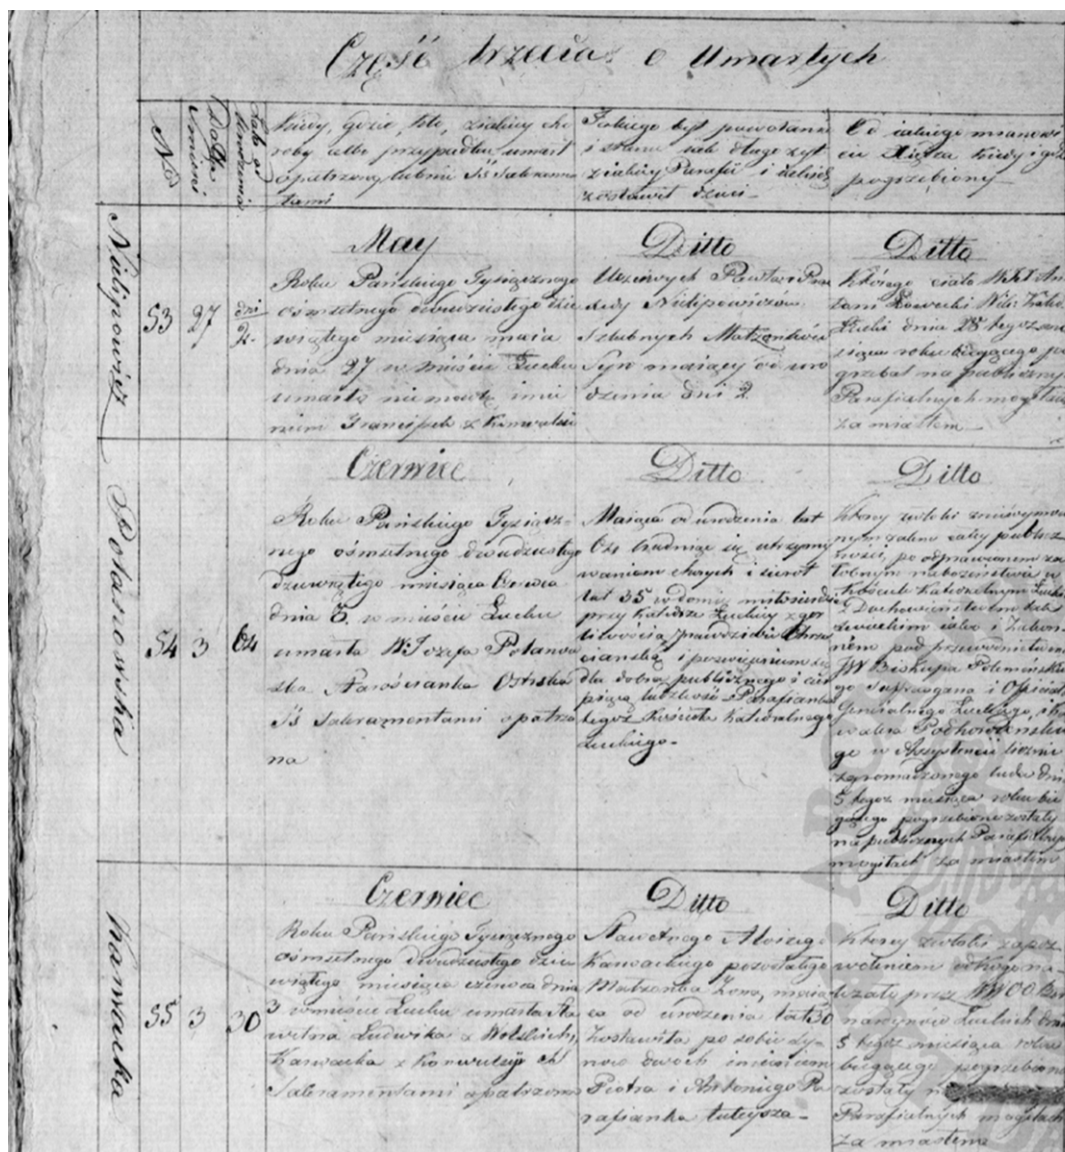 Część trzecia o Umarłych
No
Datta
Smierci
Lata od
urodzenia
Kiedy, gdzie, kto, z iakiey cho
roby albo przypadku umarł
opatrzony lub nie Śś Sakramen
tami
Jakiego był powołania
i stanu iak długo żył
z iakiey Parafii i ieśli
zostawił dzieci
Od iakiego mianowi
cie Xiędza kiedy i gdzie
pogrzebiony
Nielipowicz
53
27
dni
2
May
Roku Pańskiego Tysiącznego
ośmsetnego dwudziestego dzie
wiątego miesiąca maia
dnia 27 w mieście Łucku
umarło niemowlę imie
niem Franciszek z Konwulsii
Ditto
Uczciwych Pawła i
Nielipowiczów
Szlubnych Małżonków
Syn maiący od uro
dzenia dni 2
Ditto
Którego ciało WJX An
toni
dnia 28 tegoż mie
siąca roku bieżącego po
grzebał na publicznych
Parafialnych mogiłach
za miastem
Potanowska
54
3
64
Czerwiec
Roku Pańskiego Tysiącz-
nego ośmsetnego dwudziestego
dziewiątego miesiąca Czerwca
dnia 3 w mieście Łucku
umarła W Jozefa Potanow
ska
Śś Sakramentami opatrzo
na
Ditto
Maiąca od urodzenia lat
64 trudniąc się utrzymy
waniem chorych i sierot
lat 35 w domu miłosierdzia
przy Katedrze Łuckiey z gor
liwością prawdziwie Chrze
ciańską i poswięceniem się
dla dobra publicznego i cier
piącey ludzkości Parafianka
tegoż Kościoła Katedralnego
Łuckiego
Ditto
Którey zwłoki
nym żalem całey publicz
ności, po odprawionem ża
łobnym nabożeństwie w
Kościele Katedralnym Łuckim
z Duchowieństwem tak
świeckim iako i Zakon
nem pod przewodnictwem
JW Biskupa
go Suffragana i Officiała
Generalnego Łuckiego, i Ka
walera Podhorodeńskie
go w Assystencii licznie
zgromadzonego ludu dnia
5 tegoż miesiąca roku bie
żącego pogrzebione zostały
na publicznych Parafialnych
mogiłach za miastem
Kanwacka
55
3
30
Czerwiec
Roku Pańskiego Tysiącznego
ośmsetnego dwudziestego dzie
wiątego miesiąca czerwca dnia
3 w mieście Łucku umarła Sła
wetna Ludwika z Wolskich
Kanwacka z Konwulsyi Śś
Sakramentami opatrzona
Ditto
Sławetnego Aloizego
Kanwackiego pozostałego
Małżonka Żona, maią
ca od urodzenia lat 30
Zostawiła po sobie sy
now dwoch imieniem
Piotra i Antoniego Pa
rafianka tuteysza
Ditto
Którey zwłoki za poz-
woleniem
przez WWOO Ber
nardynów Łuckich dnia
5 tegoż miesiąca roku
bieżącego pogrzebione
zostały
Parafialnych mogiłach
za miastem